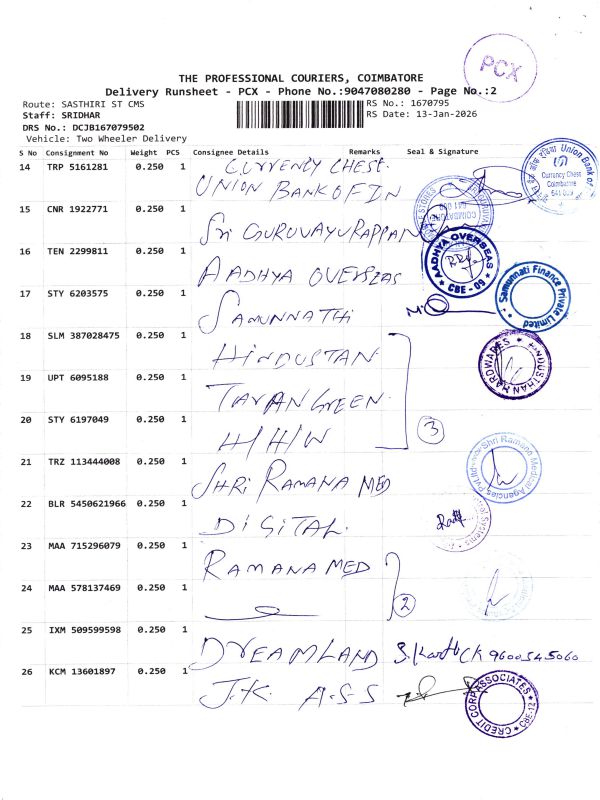 PCX
THE PROFESSIONAL COURIERS, COIMBATORE
Delivery Runsheet - PCX - Phone No.:9047080280 - Page No.:2
Route: SASTHIRI ST CMS
RS No.: 1670795
Staff: SRIDHAR
RS Date: 13-Jan-2026
DRS No.: DCJB167079502
Vehicle: Two Wheeler Delivery
S No Consignment No Weight PCS Consignee Details Remarks Seal & Signature
14 TRP 5161281 0.250 1 CURRENCY CHEST.
UNION BANK OF IN
Union Bank of
Currency Chest
Coimbatore
641 001
15 CNR 1922771 0.250 1 Sri GURUVAYURAPPAN
STORES
COIMBATORE
16 TEN 2299811 0.250 1 AADHYA OVERSEAS
AADHYA OVERSEAS
CBE - 09
17 STY 6203575 0.250 1 SAMUNNATHI
Samunnati Finance Private Limited
18 SLM 387028475 0.250 1 HINDUSTAN
HINDUSTHAN HARDWARES
19 UPT 6095188 0.250 1 GREEN
20 STY 6197049 0.250 1 H/H/W
3
21 TRZ 113444008 0.250 1 SHRI RAMANA MED
Shri Ramana Medical Agencies Pvt Ltd
22 BLR 5450621966 0.250 1 DIGITAL
Systems
23 MAA 715296079 0.250 1 RAMANA MED
24 MAA 578137469 0.250 1
2
25 IXM 509599598 0.250 1 DREAMLAND S. 9600545060
26 KCM 13601897 0.250 1 J.K. A.S.S
CREDIT CORP ASSOCIATES
CBE-12